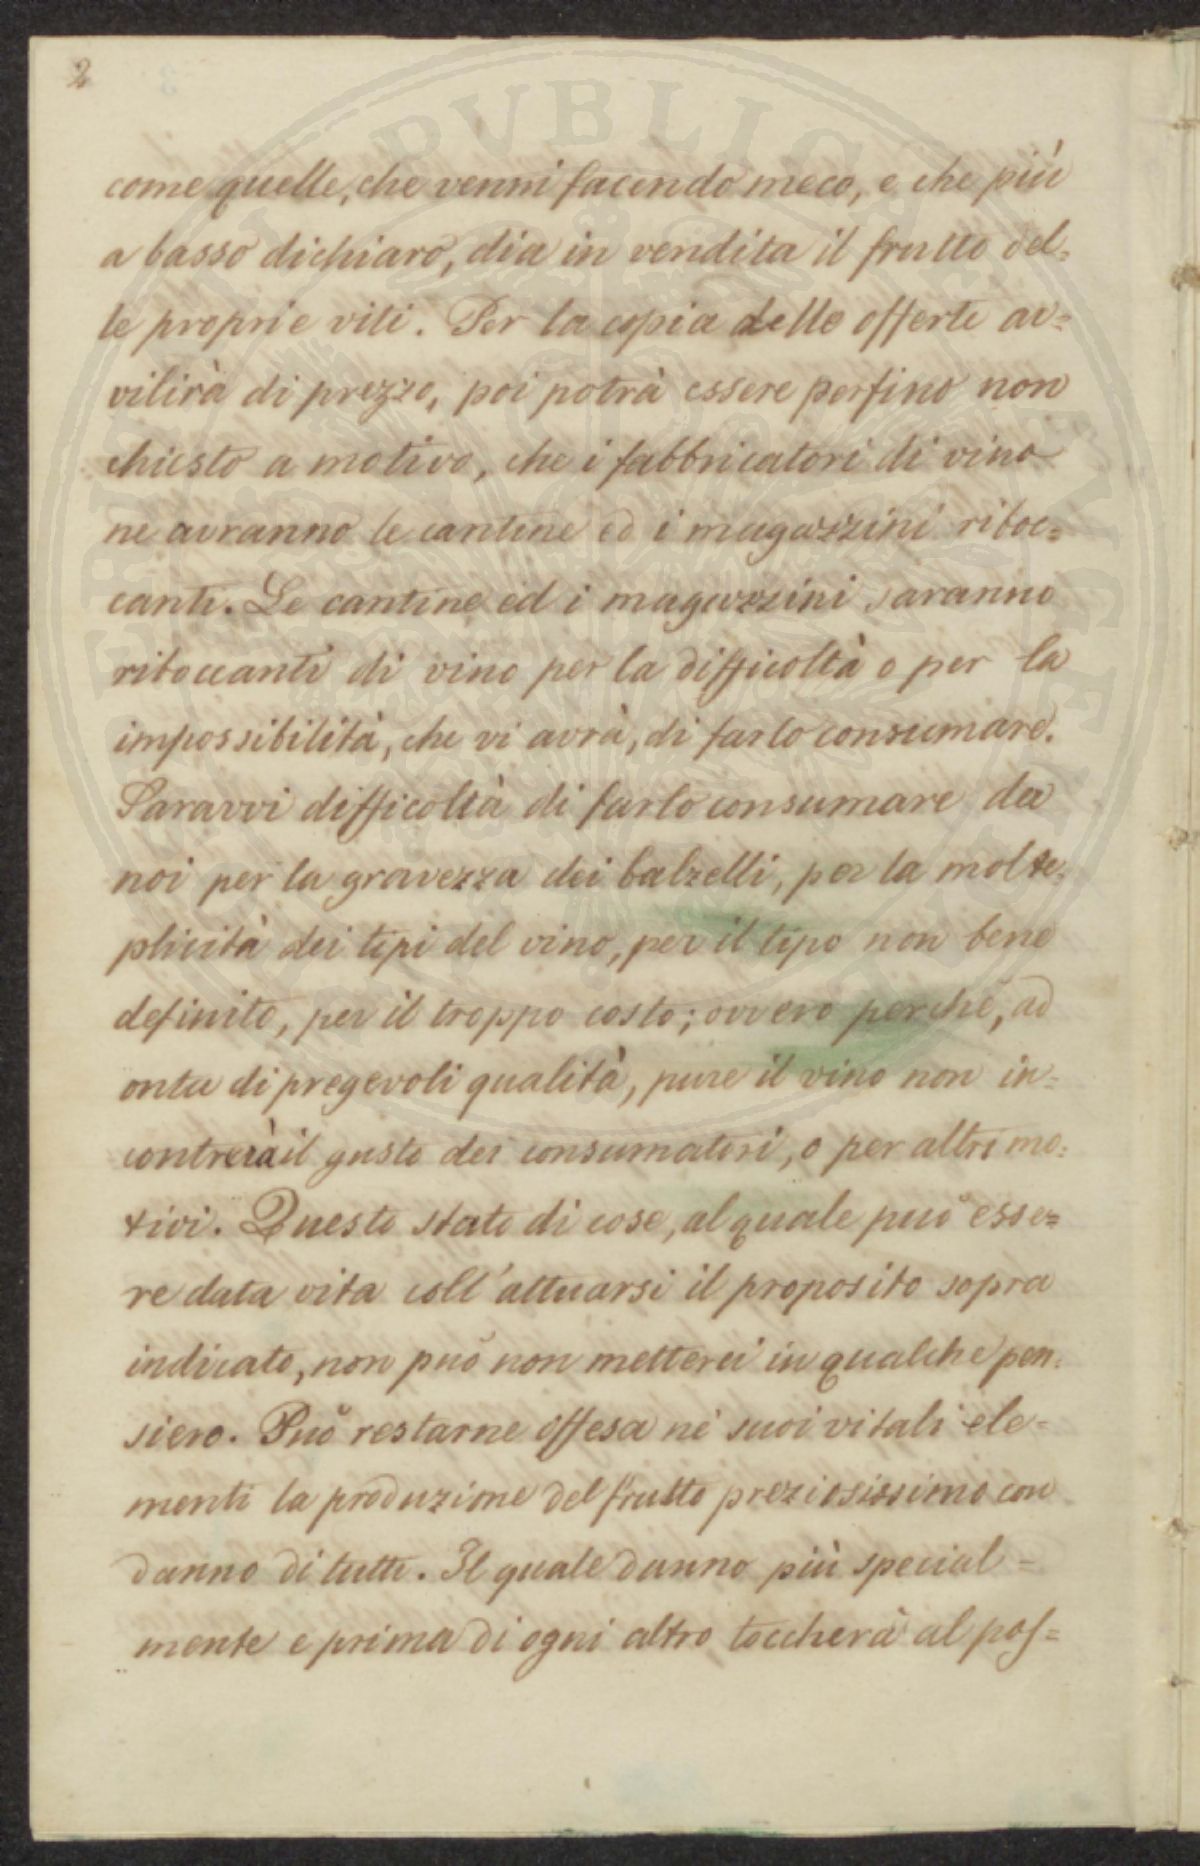 2
come quelle, che venni facendo meco, e che più
a basso dichiaro, dia in vendita il frutto del=
le proprie viti. Per la copia delle offerte av=
vilirà di prezzo, poi potrà essere perfino non
chiesto a motivo, che i fabbricatori di vino
ne avranno le cantine ed i magazzini riboc=
canti. Le cantine ed i magazzini saranno
riboccanti di vino per la difficoltà o per la
impossibilità, che vi avrà, di farlo consumare.
Saravvi difficoltà di farlo consumare da
noi per la gravezza dei balzelli, per la molte=
plicità dei tipi del vino, per il tipo non bene
definito, per il troppo costo; ovvero perchè, ad
onta di pregevoli qualità, pure il vino non in=
contrerà il gusto dei consumatori, o per altri mo=
tivi. Questo stato di cose, al quale può esse=
re data vita coll'attuarsi il proposito sopra
indicato, non può non metterci in qualche pen=
siero. Può restarne offesa nè suoi vitali ele=
menti la produzione del frutto preziosissimo con
danno di tutti. Il quale danno più special=
mente e prima di ogni altro toccherà al pos=
PVBLICAE